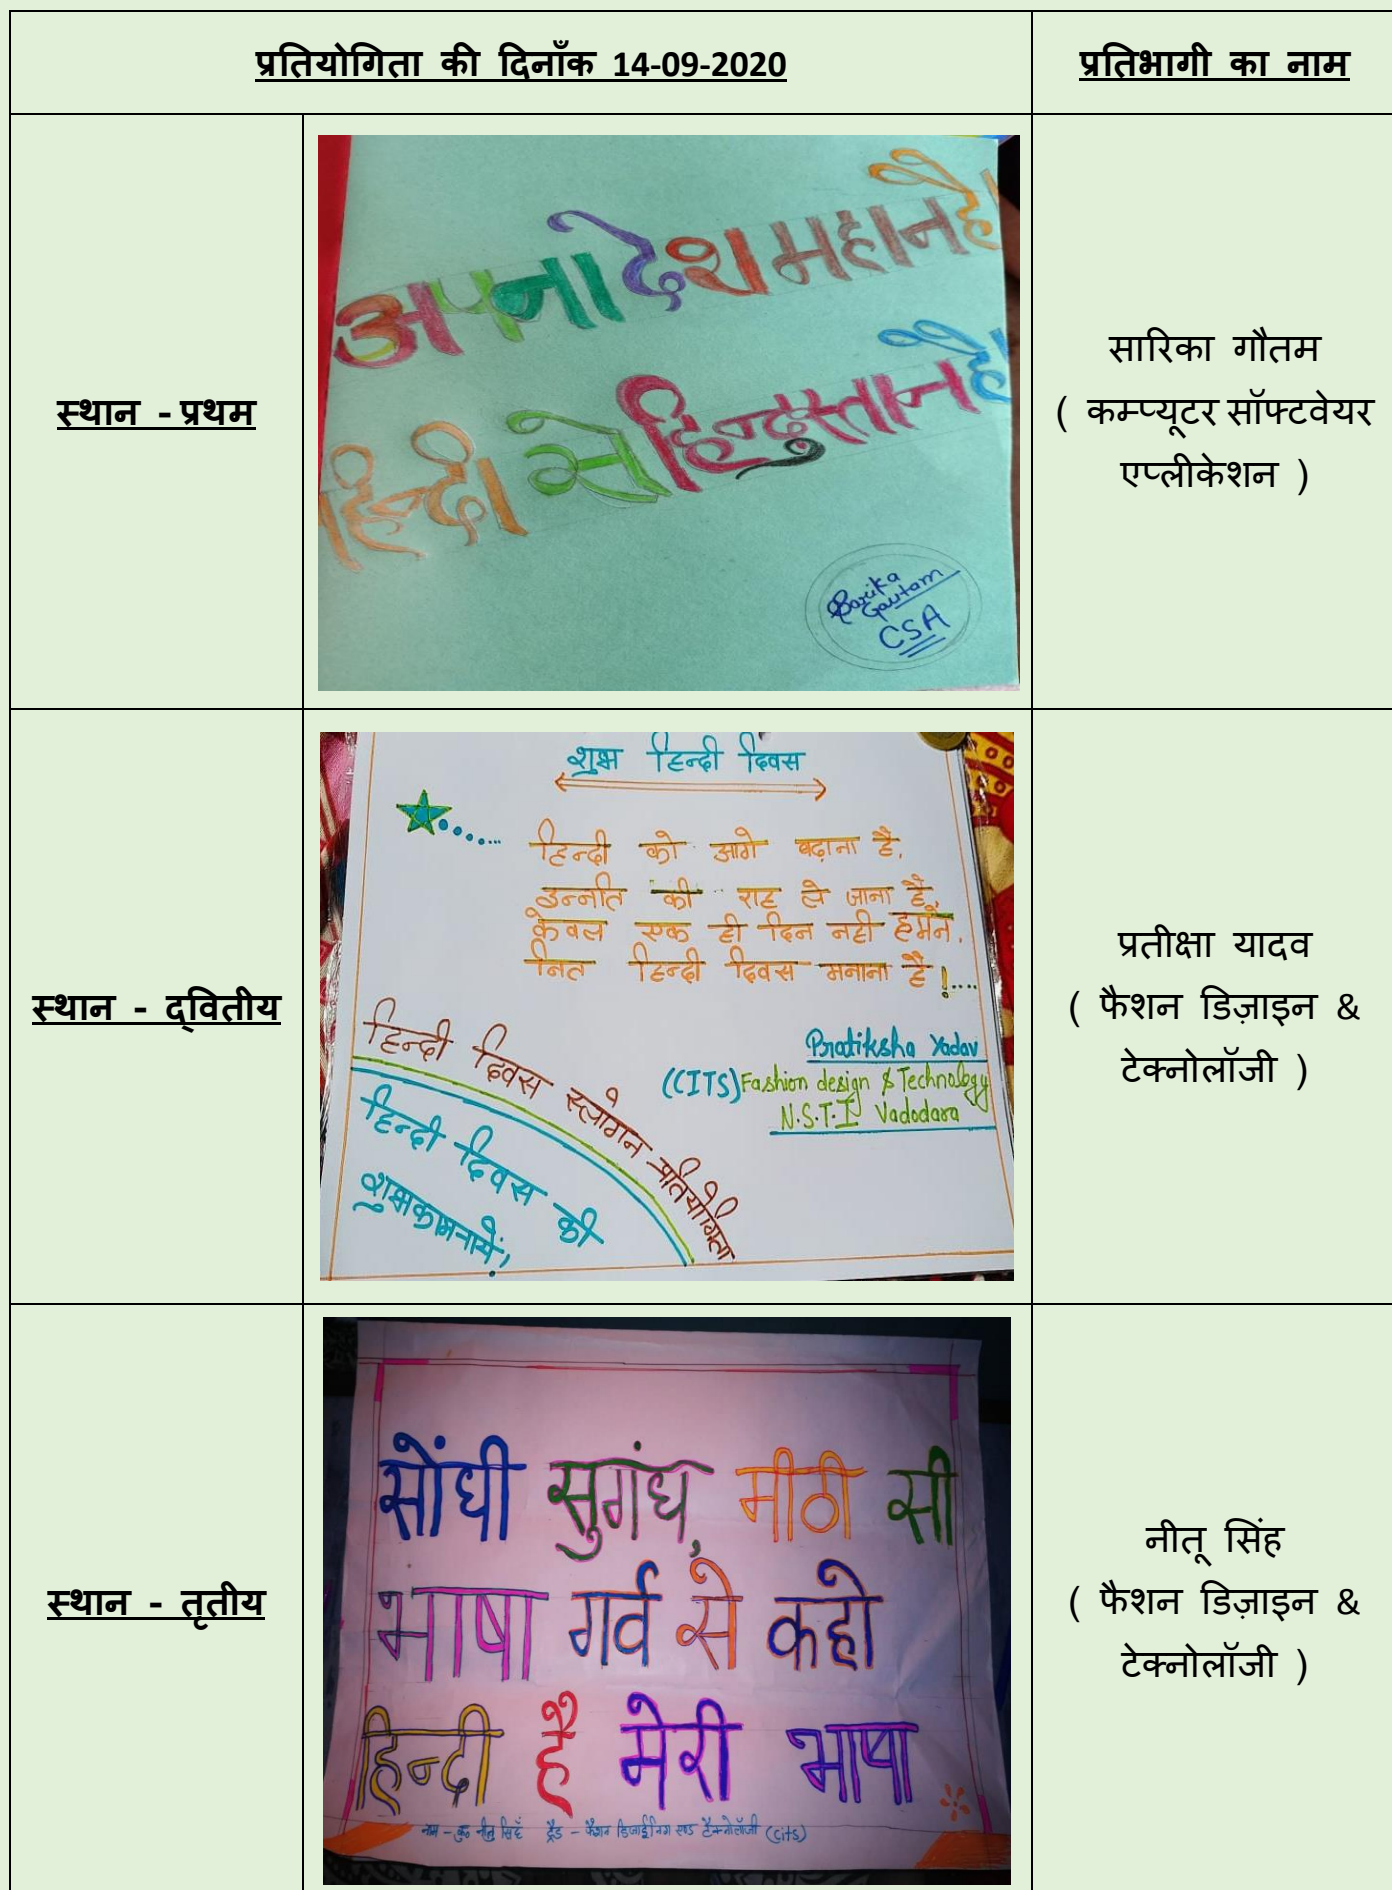 प्रतियोगिता की दिनाँक 14-09-2020
प्रतिभागी का नाम
स्थान - प्रथम
अपना देश महान है।
हिन्दी से हिन्दुस्तान है
Sarika
Gautam
CSA
सारिका गौतम
( कम्प्यूटर सॉफ्टवेयर
एप्लीकेशन )
स्थान - द्वितीय
शुभ हिन्दी दिवस
हिन्दी को आगे बढ़ाना है,
उन्नति की राह ले जाना है,
केवल एक ही दिन नही हमने,
नित हिन्दी दिवस मनाना है!....
Pratiksha Yadav
(CITS) Fashion design & Technology
N.S.T.I Vadodara
हिन्दी दिवस स्लोगन प्रतियोगिता
हिन्दी दिवस की
शुभकामनायें!
प्रतीक्षा यादव
( फैशन डिज़ाइन &
टेक्नोलॉजी )
स्थान - तृतीय
सोंधी सुगंध, मीठी सी
भाषा गर्व से कहो
हिन्दी है मेरी भाषा
नाम - कु० नीतु सिहँ ट्रैड - फैशन डिजाईनिंग एण्ड टैक्नोलॉजी (cits)
नीतू सिंह
( फैशन डिज़ाइन &
टेक्नोलॉजी )